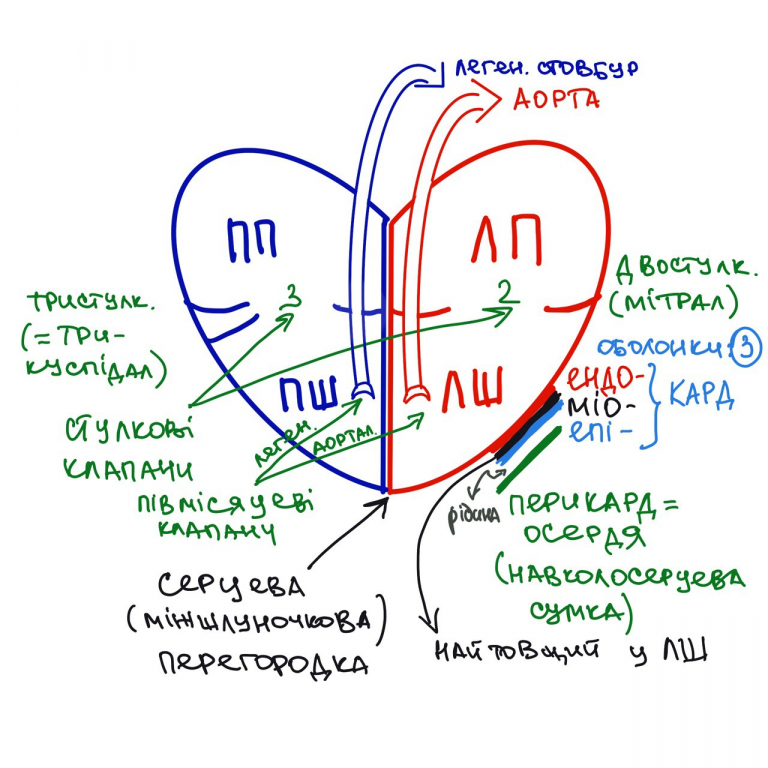 леген. стовбур
АОРТА
ПП
ЛП
тристулк.
(= три-
куспідал)
3
2
двостулк.
(мітрал)
оболонки: 3
ЕНДО-
МІО-
ЕПІ-
КАРД
ПШ
ЛШ
стулкові
клапани
леген.
аортал.
півмісяцеві
клапани
рідина
перикард =
осердя
(навколосерцева
сумка)
серцева
(міжшлуночкова)
перегородка
найтовщий у ЛШ